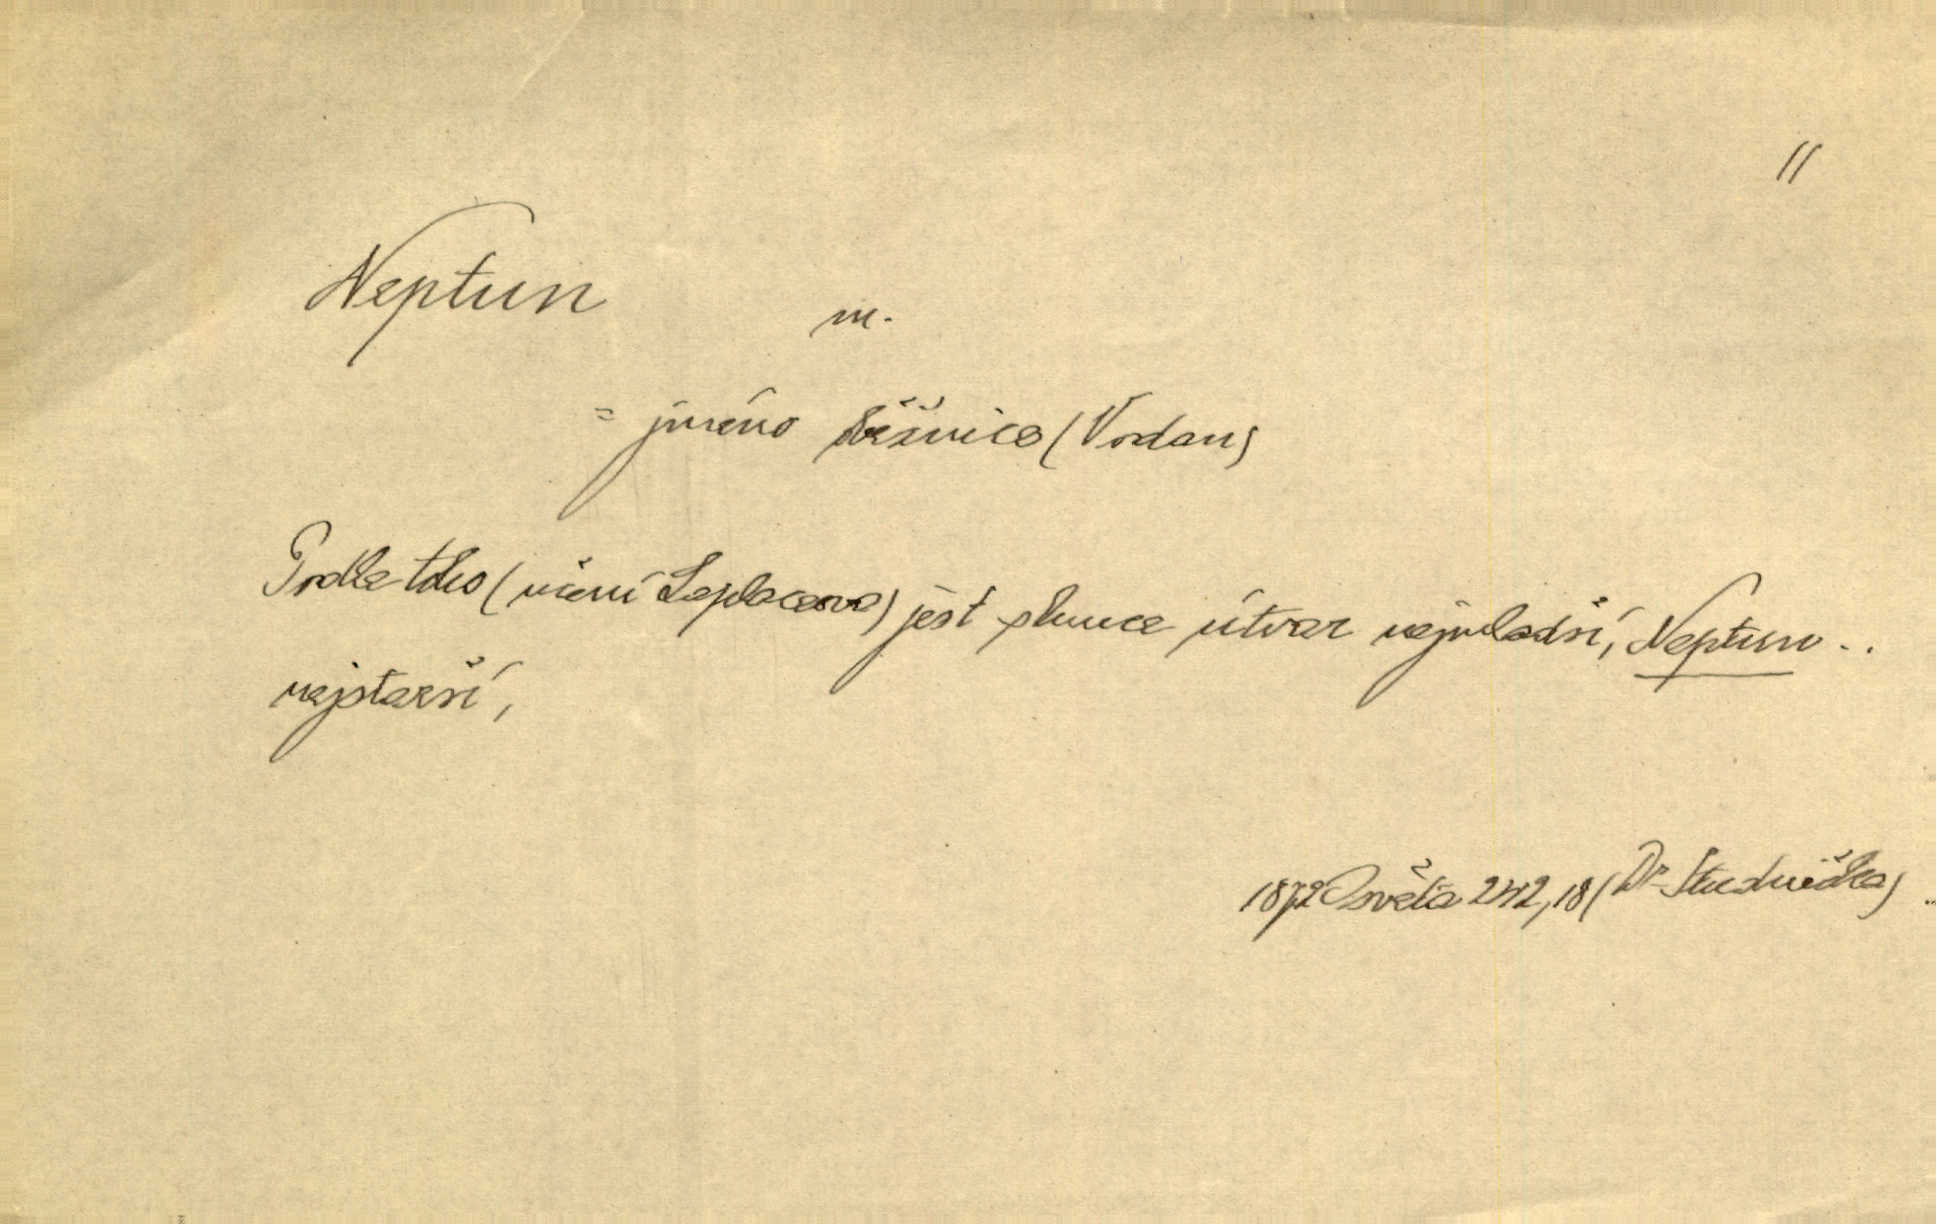 11
Neptun m.
= jméno běžnice (Vodan)
Podle toho (učení Laplaceova) jest slunce útvar nejmladší, Neptun ..
nejstarší,
1872 Osvěta 242, 18 (Dr Studnička)